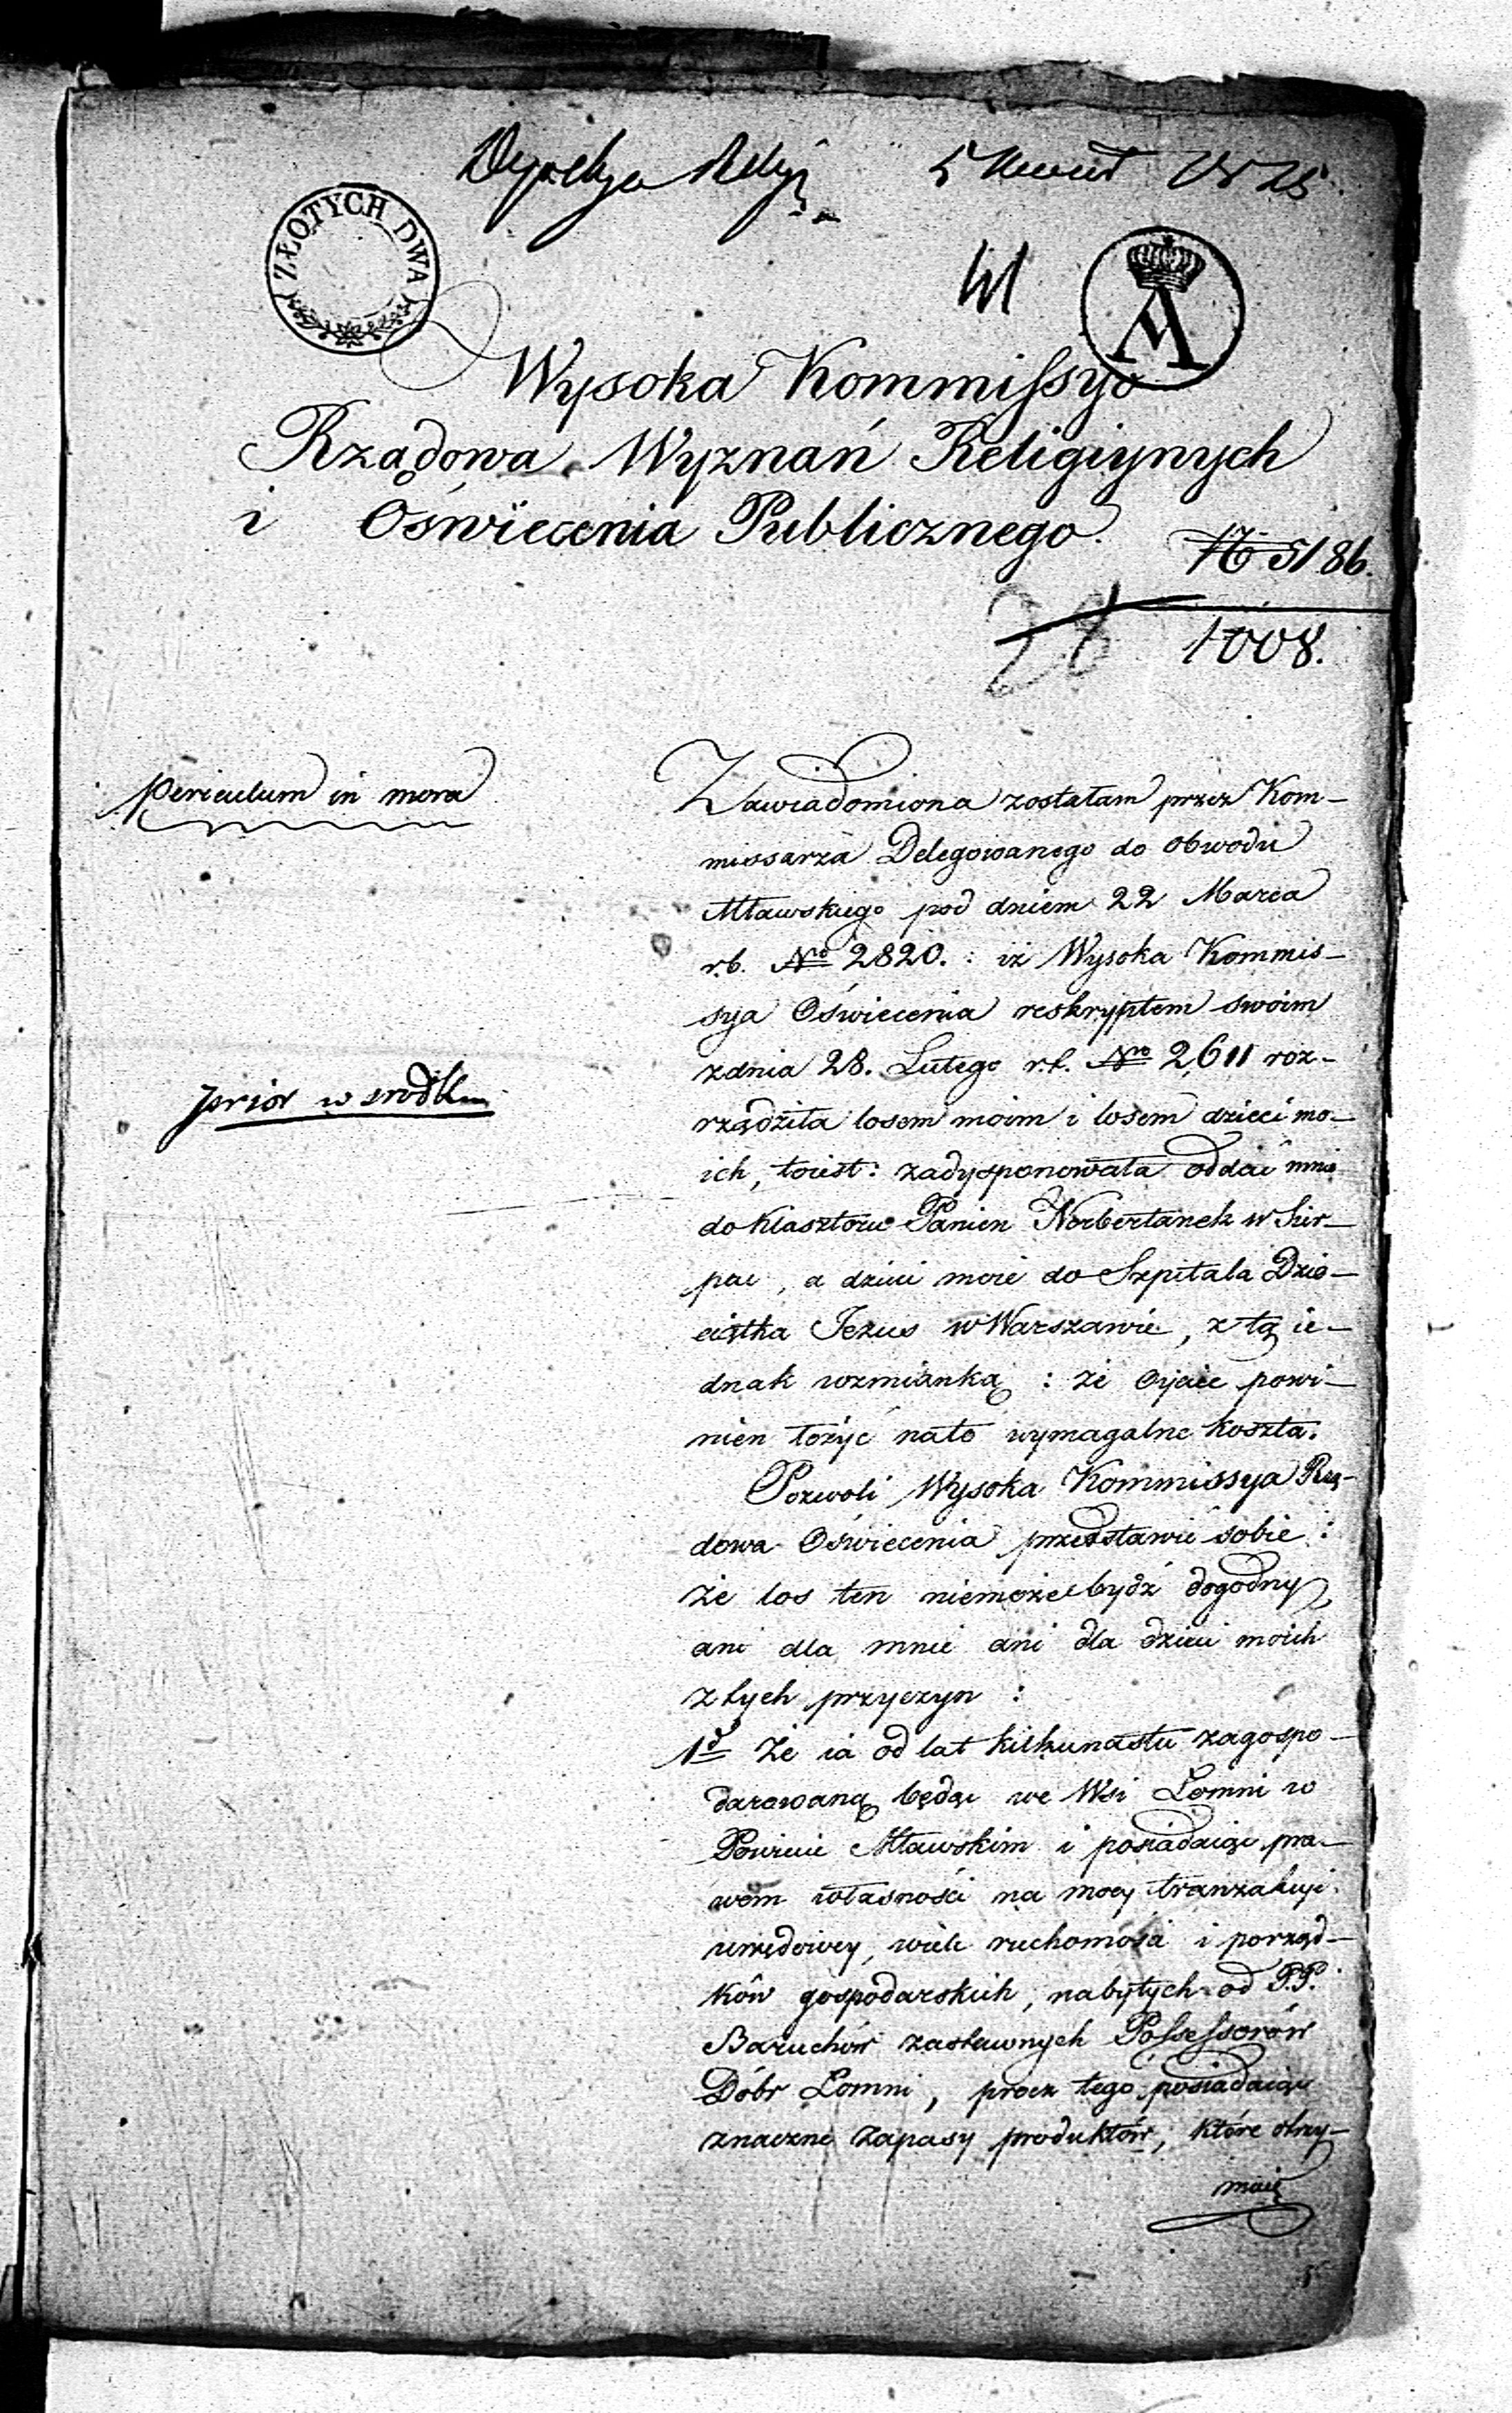 Dyrekcya 5 1825
ZŁOTYCH DWA
A
Wysoka Kommissyo
Rządowa Wyznań Religiynych
i Oświecenia Publicznego.
No 5186.
28 1008.
Periculum in mora
Zawiadomiona zostałam przez Kom-
missarza Delegowanego do obwodu
Mławskiego pod dniem 22 Marca
r.b. No 2820. : iż Wysoka Kommis-
sya Oświecenia reskryptem swoim
zdnia 28. Lutego r.b. Nro 2,611 roz-
prior w srodku
rządziła losem moim i losem dzieci mo-
ich, toiest: zadysponowała oddać mnie
do Klasztoru Panien Norbertanek w Sier-
pcu, a dzieci moie do Szpitala Dzie-
ciątka Jezus w Warszawie, z tą ie-
dnak wzmianką : że oyciec powi-
nien łożyć nato wymagalne koszta.
Pozwoli Wysoka Kommissya Rzą-
dowa Oświecenia przedstawić sobie :
że los ten niemoże bydź dogodny
ani dla mnie ani dla dzieci moich
z tych przyczyn :
1d Że ia od lat kilkunastu zagospo-
darowaną będąc we Wsi Łomni w
Powiecie Mławskim i posiadaiąc pra-
wem własności na mocy tranzakcyi
urzędowey, wiele ruchomości i porząd-
ków gospodarskich, nabytych od P.P.
Baruchów zastawnych Possessorów
Dóbr Łomni, procz tego posiadaiąc
znaczne zapasy produktów, które otrzy-
maię